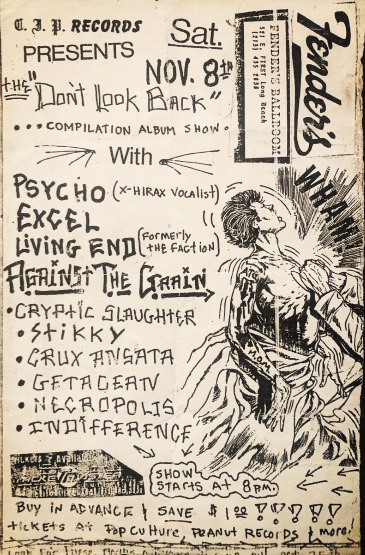 C.I.P. RECORDS
PRESENTS
Sat.
NOV. 8th
THE "Don't Look Back"
COMPILATION ALBUM SHOW
With
Fender's
FENDER'S BALLROOM
521 E. FIRST Long Beach
WHAM
PSYCHO (X-HIRAX VOCALIST)
EXCEL
LIVING END (FORMERLY THE FACTION)
AGAINST THE GRAIN
• CRYPTIC SLAUGHTER
• STIKKY
• CRUX ANSATA
• GETAGEAN
• NECROPOLIS
• INDIFFERENCE
MOM
SHOW
STARTS AT 8PM.
BUY IN ADVANCE & SAVE $1.00 !!!!!
TICKETS AT POP CULTURE, PEANUT RECORDS & more!
Look For These